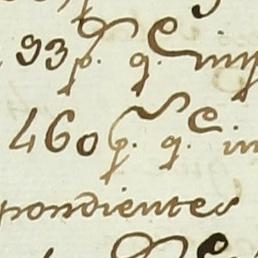 93 p. q.e imp
460 p. q.e im
pondientes